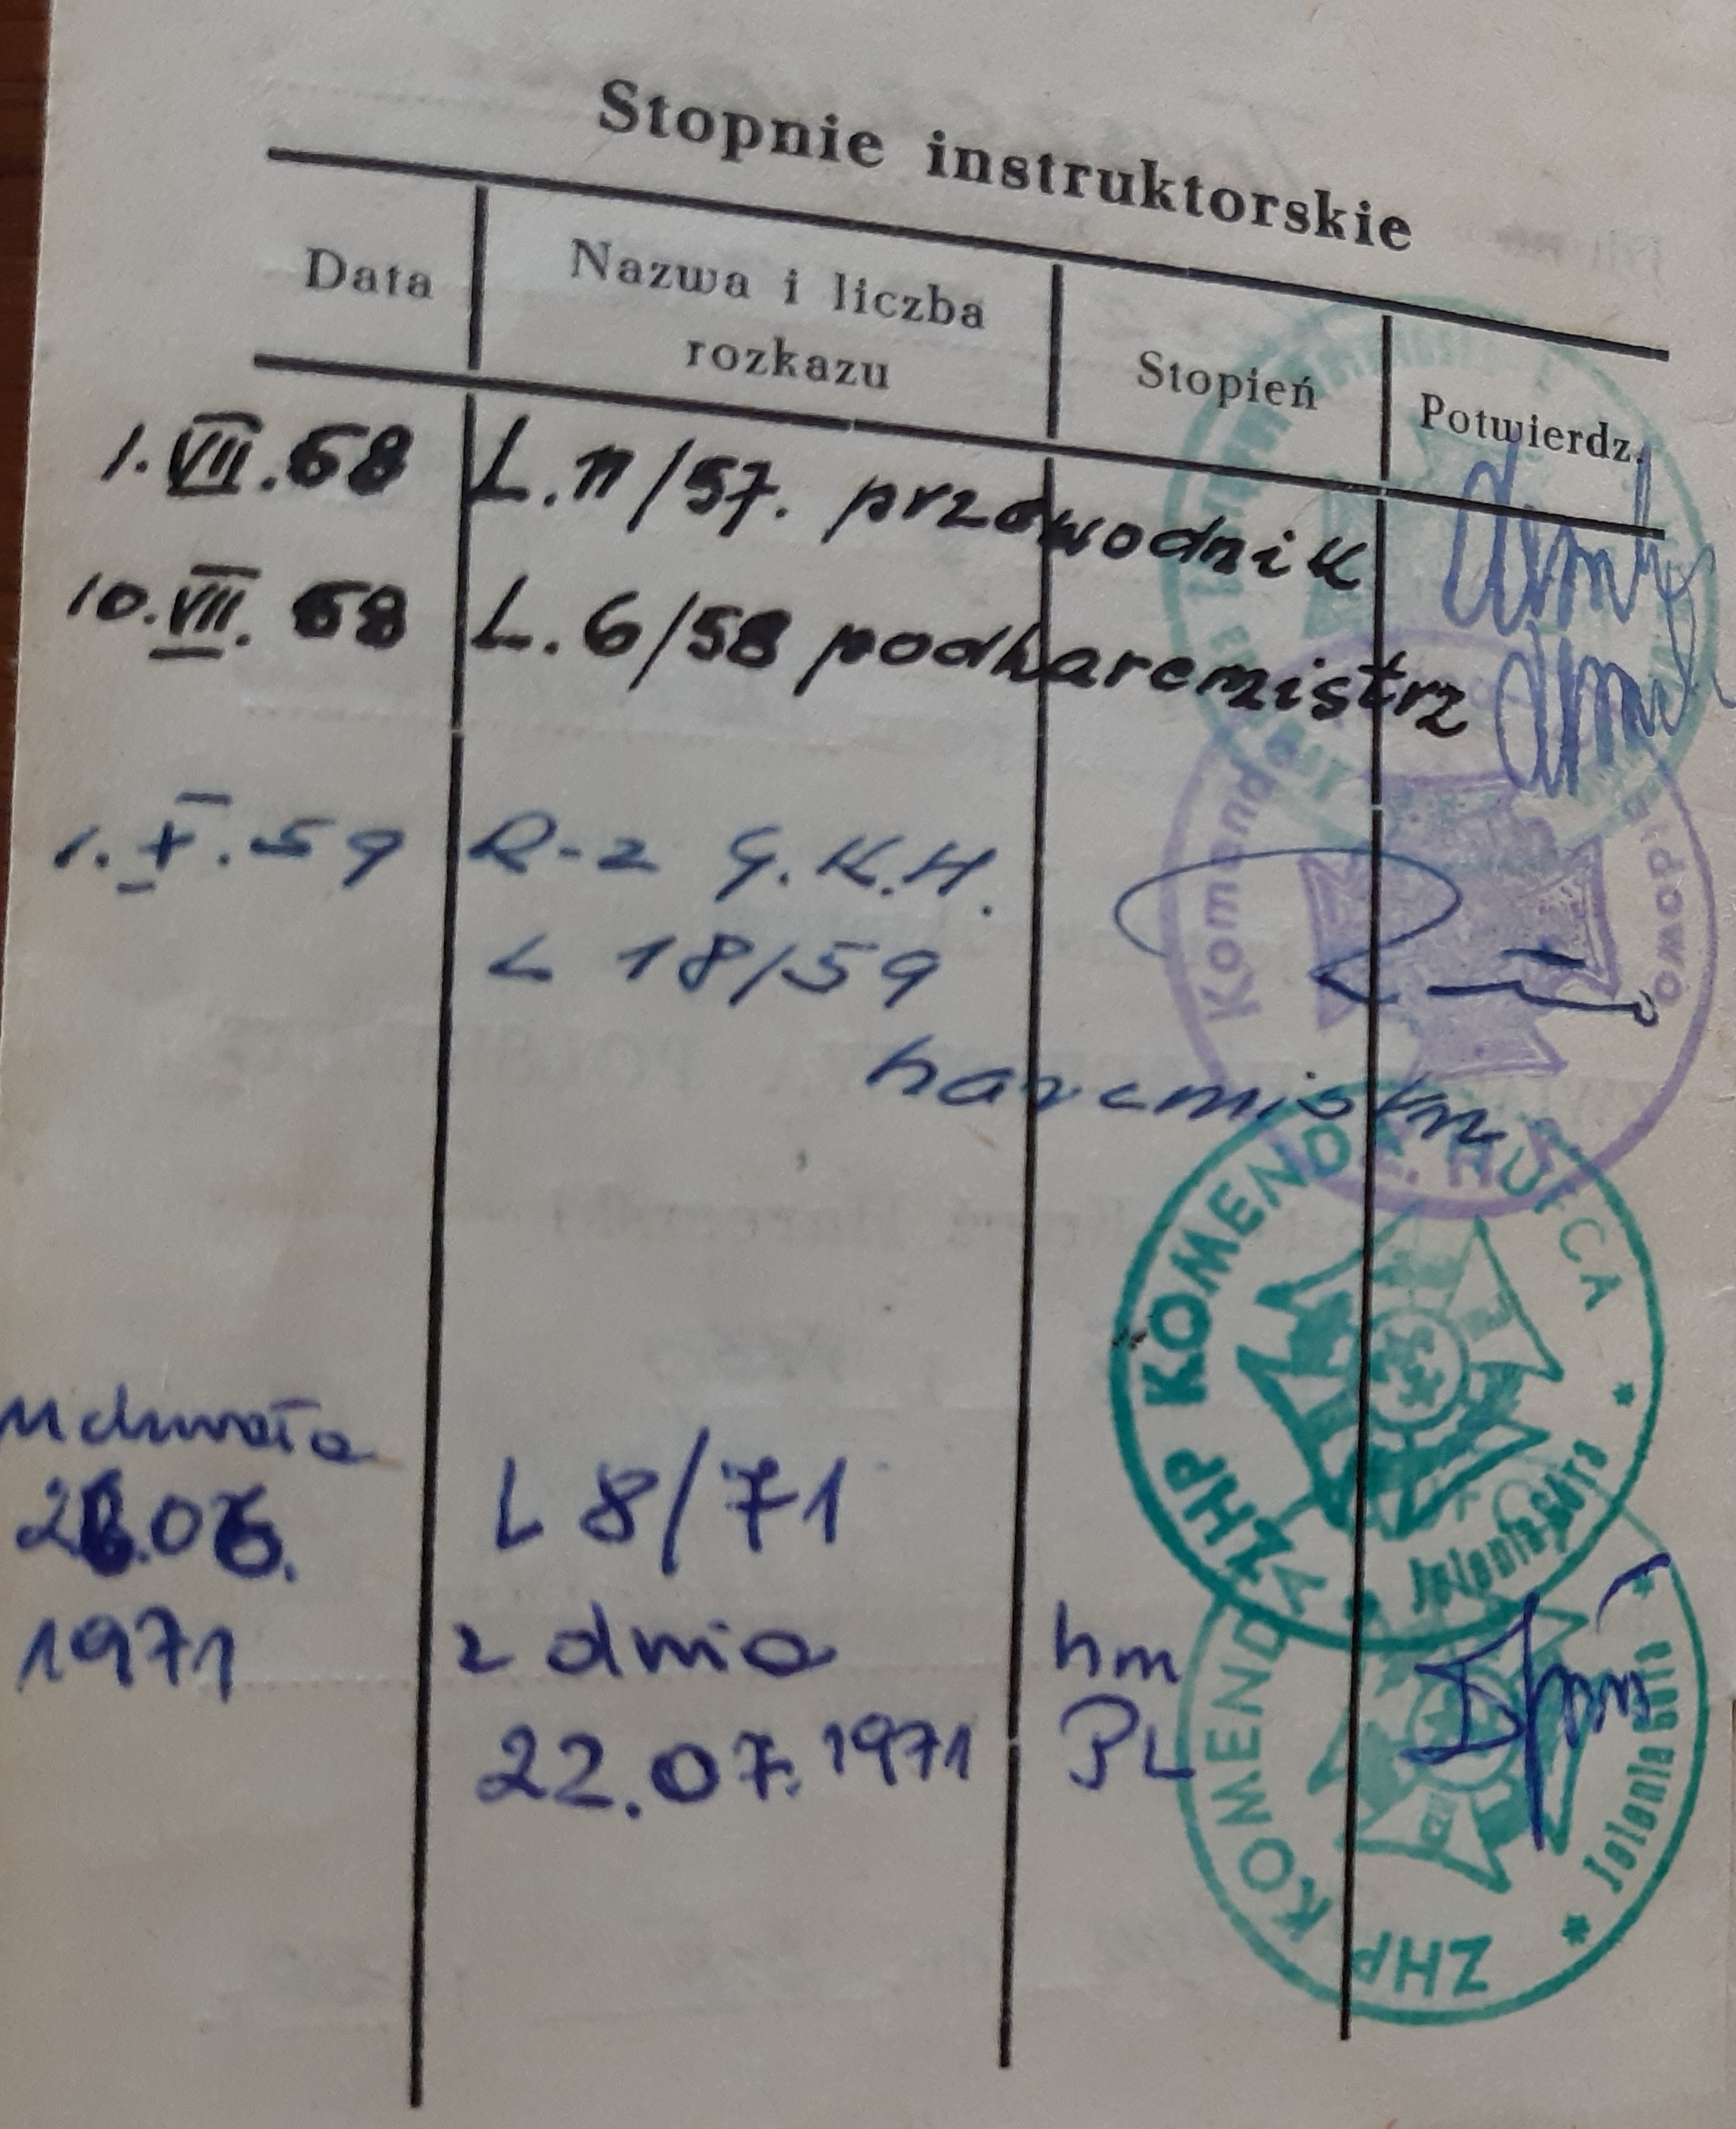 Stopnie instruktorskie
Data
Nazwa i liczba
rozkazu
Stopień
Potwierdz.
1.VII.58 L.11/57. przewodnik
10.VII.58 L.6/58 podharcmistrz
1.X.59 R-2 G.K.H.
L 18/59
harcmistrz
Uchwała
06.
L 8/71
1971 z dnia hm
22.07.1971 PL
Komenda
ZHP KOMENDA HUFCA
* Jelenia Góra *
ZHP KOMENDA
* Jelenia Góra *